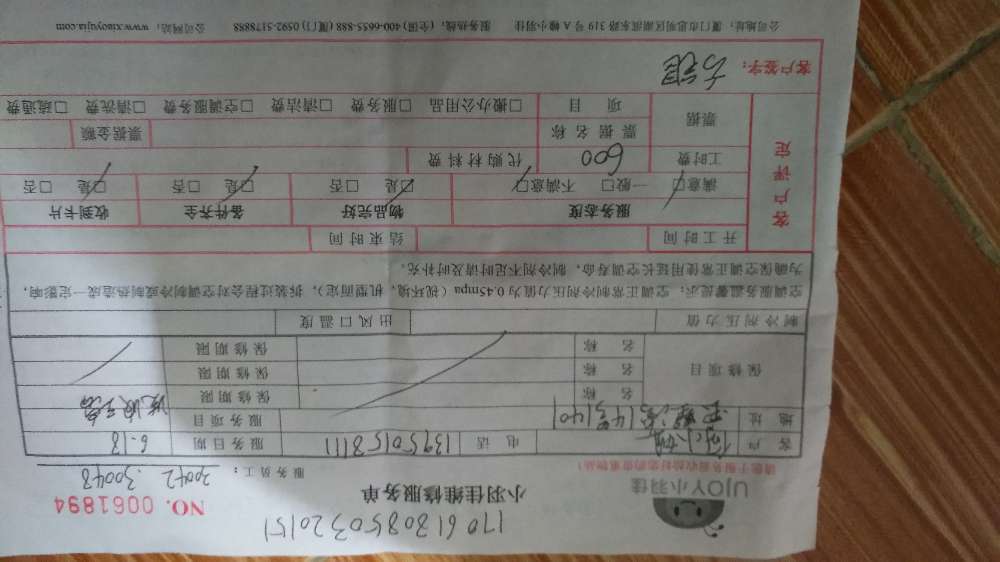 1706180850320151
UJOY小羽佳
小羽佳维修服务单
NO. 0061894
请您于服务前收拾好您的贵重物品!
服务员工: 30042 30048
客户 电话 13950158111 服务日期 6.18
地址 14号140 服务项目
保修项目 名称 保修期限
名称 保修期限
名称 保修期限
制冷剂压力值 出风口温度
空调服务温馨提示:空调正常制冷剂压力值为0.45mpa(视环境、机型而定),拆装过程会对空调制冷或制热造成一定影响,
为确保空调正常使用延长空调寿命,制冷剂不足时请及时补充。
客户评定
开工时间 结束时间
服务态度 物品完好 备件齐全 收到卡片
满意□ 一般□ 不满意□ □是 □否 □是 □否 □是 □否
工时费 600 代购材料费
票据 票据名称 票据金额
项目 □搬办公用品 □服务费 □清洁费 □空调服务费 □清洗费 □疏通费
客户签字:
公司地址:厦门市思明区湖滨东路319号A幢小羽佳 服务热线:(全国)400-6655-888(厦门)0592-5178888 公司网站:www.xiaoyujia.com